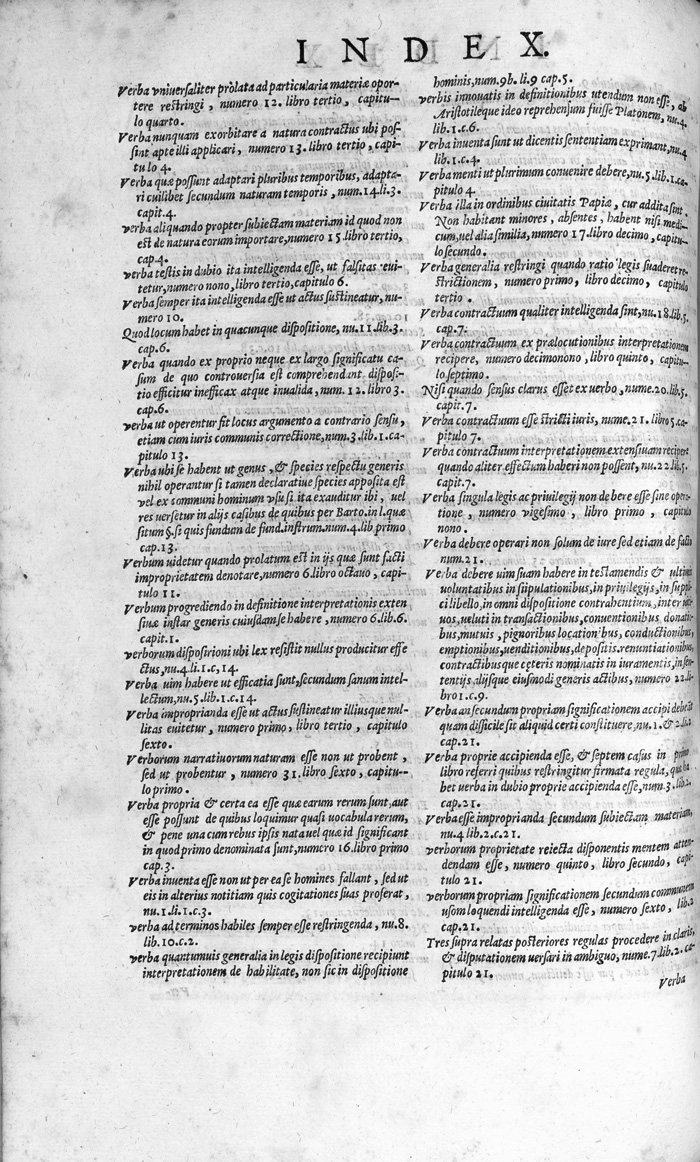 INDEX.
Verba vniuersaliter prolata ad particularia materiæ opor-
tere restringi, numero 12. libro tertio, capitu-
lo quarto.
Verba nunquam exorbitare a natura contractus ubi pos-
sint apte illi applicari, numero 13. libro tertio, capi-
tulo 4.
Verba quæ possunt adaptari pluribus temporibus, adapta-
ri cuilibet secundum naturam temporis, num.14.li.3.
capit.4.
verba aliquando propter subiectam materiam id quod non
est de natura eorum importare, numero 15.libro tertio,
cap.4.
verba testis in dubio ita intelligenda esse, ut falsitas eui-
tetur, numero nono, libro tertio, capitulo 6.
Verba semper ita intelligenda esse ut actus sustineatur, nu-
mero 10.
Quod locum habet in quacunque dispositione, nu.11.lib.3.
cap.6.
Verba quando ex proprio neque ex largo significatu ca-
sum de quo controuersia est comprehendant disposi-
tio efficitur inefficax atque inualida, num.12.libro 3.
cap.6.
verba ut operentur fit locus argumento a contrario sensu,
etiam cum iuris communis correctione, num.3.lib.1.ca-
pitulo 13.
Verba ubi se habent ut genus, & species respectu generis
nihil operantur si tamen declaratiue species apposita est
vel ex communi hominum vsu si ita exauditur ibi, uel
res uersetur in alijs casibus de quibus per Barto.in l.quæ
situm §.si quis fundum de fund.instrum.num.4.lib primo
cap.13.
Verbum uidetur quando prolatum est in ijs quæ sunt facti
improprietatem denotare, numero 6.libro octauo, capi-
tulo 11.
Verbum progrediendo in definitione interpretationis exten
siuæ instar generis cuiusdam se habere, numero 6.lib.6.
capit.1.
verborum dispositioni ubi lex resistit nullus producitur effe
ctus, nu.4.li.1.c,14.
Verba uim habere ut efficatia sunt, secundum sanum intel-
lectum, nu.5.lib.1.c.14.
Verba improprianda esse ut actus sustineatur illiusque nul-
litas euitetur, numero primo, libro tertio, capitulo
sexto.
Verborum narratiuorum naturam esse non ut probent,
sed ut probentur, numero 31.libro sexto, capitu-
lo primo.
Verba propria & certa ea esse quæ earum rerum sunt, aut
esse possunt de quibus loquimur quasi uocabula rerum,
& pene una cum rebus ipsis nata uel quæ id significant
in quod primo denominata sunt, numero 16.libro primo
cap.3.
Verba inuenta esse non ut per ea se homines fallant, sed ut
eis in alterius notitiam quis cogitationes suas proferat,
nu.1.li.1.c.3.
verba ad terminos habiles semper esse restringenda, nu.8.
lib.10.c.2.
verba quantumuis generalia in legis dispositione recipiunt
interpretationem de habilitate, non sic in dispositione
hominis, num.9b.li.9 cap.5.
verbis innouatis in definitionibus utendum non esse, ab
Aristotileque ideo reprehensum fuisse Platonem, nu.4.
lib.1.c.6.
Verba inuenta sunt ut dicentis sententiam exprimant, nu.4
lib.1.c.4.
Verba menti ut plurimum conuenire debere, nu.5.lib.1.ca-
pitulo 4.
Verba illa in ordinibus ciuitatis Papiæ, cur addita sint.
Non habitant minores, absentes, habent nisi medi-
cum, uel alia similia, numero 17.libro decimo, capitu-
lo secundo.
Verba generalia restringi quando ratio legis suaderet re-
strictionem, numero primo, libro decimo, capitulo
tertio.
Verba contractum qualiter intelligenda sint, nu.18.lib.5.
cap.7.
Verba contractuum ex prælocutionibus interpretationem
recipere, numero decimonono, libro quinto, capitu-
lo septimo.
Nisi quando sensus clarus esset ex uerbo, nume.20.lib.5.
capit.7.
Verba contractuum esse stricti iuris, nume.21.libro 5.ca-
pitulo 7.
Verba contractuum interpretationem extensiuam recipere
quando aliter effectum haberi non possent, nu.22.lib.5.
capit.7.
Verba singula legis ac priuilegij non debere esse sine opera-
tione, numero vigesimo, libro primo, capitulo
nono.
Verba debere operari non solum de iure sed etiam de facto
num.21.
Verba debere uim suam habere in testamendis & ultimis
uoluntatibus in stipulationibus, in priuilegijs, in suppli
ci libello, in omni dispositione contrahentium, inter ui-
uos, ueluti in transactionibus, conuentionibus, donatio-
bus, mutuis, pignoribus locationibus, conductionibus,
emptionibus, uenditionibus, depositis, renuntiationibus,
contractibusque ceteris nominatis in iuramentis, in sen-
tentijs, alijsque eiusmodi generis actibus, numero 22.li-
bro 1.c.9.
Verba an secundum propriam significationem accipi debeat
quam difficile sit aliquid certi constituere, nu.1.& 2.li.2
cap.21.
Verba proprie accipienda esse, & septem casus in primo
libro referri quibus restringitur firmata regula, quæ ha
bet uerba in dubio proprie accipienda esse, num.3.lib.2.
cap.21.
Verba esse improprianda secundum subiectam materiam,
nu.4.lib.2.c.21.
verborum proprietate reiecta disponentis mentem atten-
dendam esse, numero quinto, libro secundo, capi-
tulo 21.
verborum propriam significationem secundum communem
usum loquendi intelligenda esse, numero sexto, lib.2
cap.21.
Tres supra relatas posteriores regulas procedere in claris,
& disputationem uersari in ambiguo, nume.7.lib.2.ca-
pitulo 21.
Verba